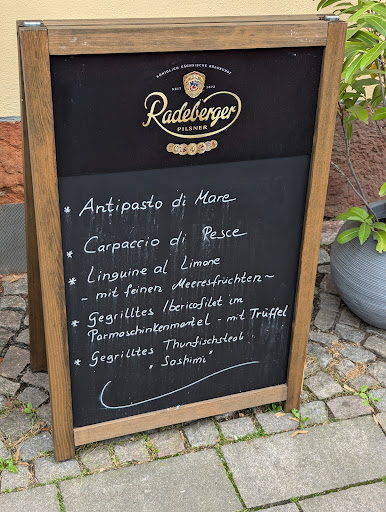 Radeberger
PILSNER
* Antipasto di Mare
* Carpaccio di Pesce
* Linguine al Limone
- mit feinen Meeresfrüchten ~
* Gegrilltes Ibericofilet im
Parmaschinkenmantel - mit Trüffel
* Gegrilltes Thunfischsteak
"Sashimi"